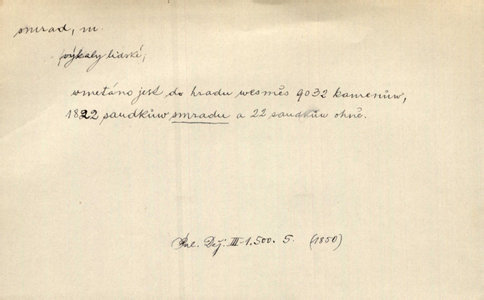 smrad, m.
výkaly lidské;
vmetáno jest do hradu wesměs 9032 kamenůw,
1822 saudkůw smradu a 22 saudkůw ohně.
Pal. Děj. III-1.500. 5. (1850)